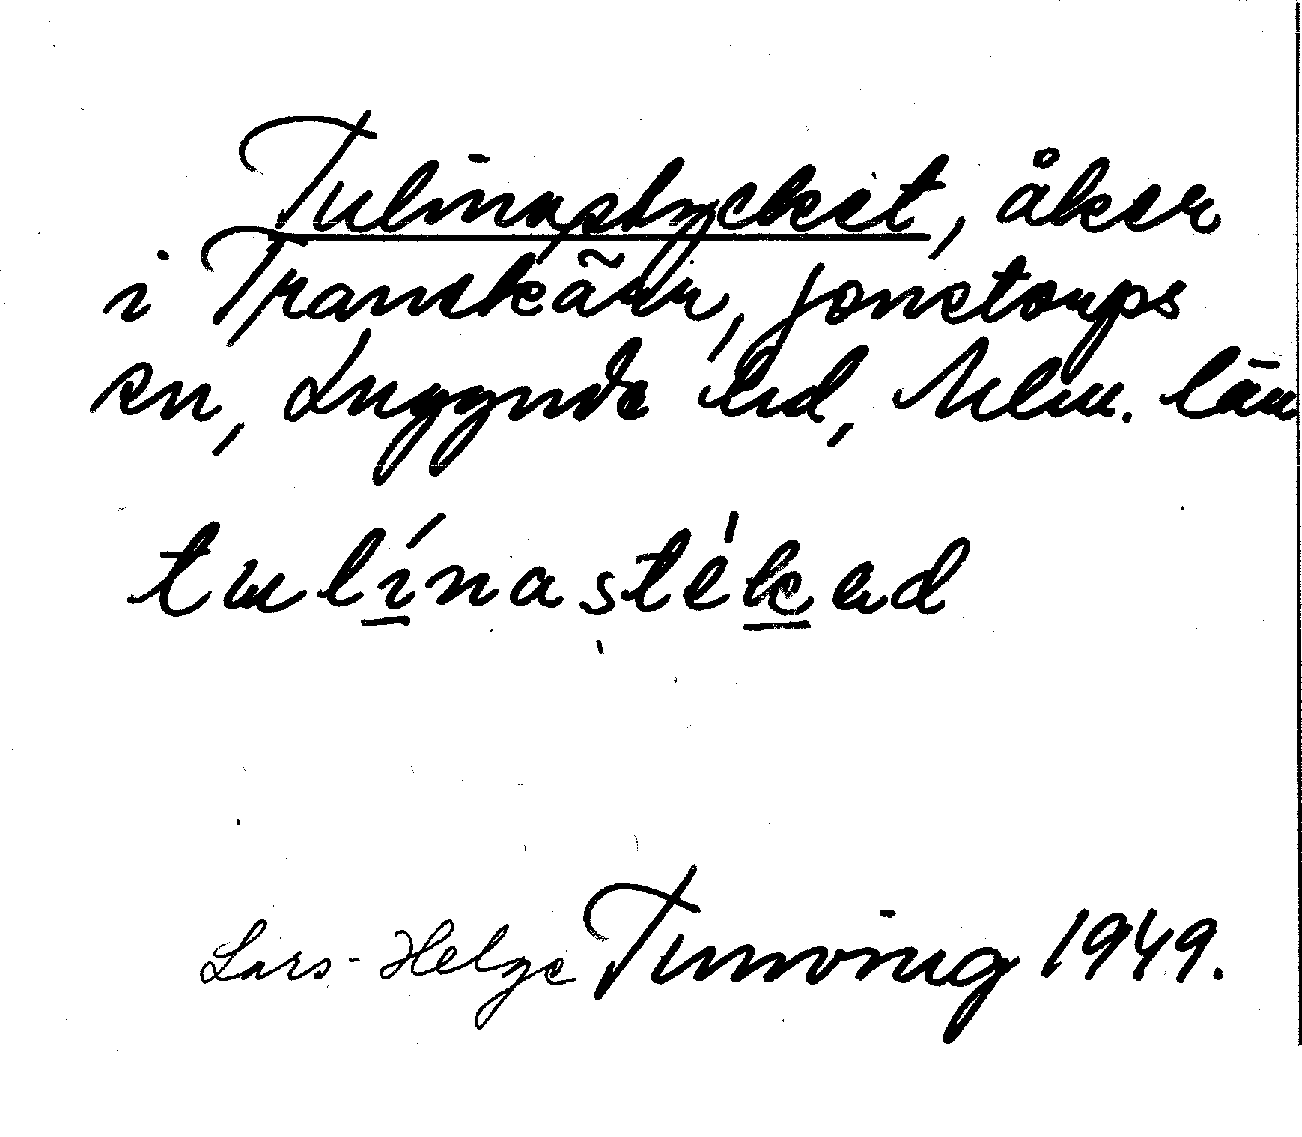 Tulinastycket, åker
i Tranekärr, Jonstorps
sn, Luggude hd, Malm. län
tulínastékad
Lars-Helge Tunving 1949.